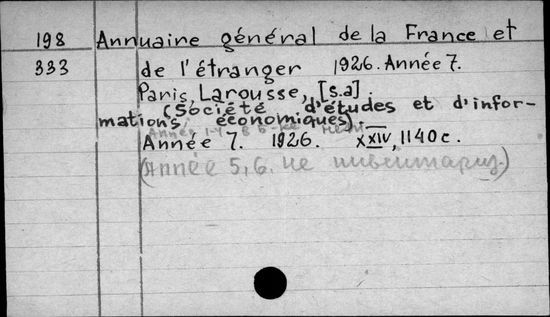 198 Annuaire général de la France et
333 de l'étranger 1926. Année 7.
Paris, Larousse, [s.a].
(Société d'études et d'infor-
mations économiques).
Année 7. 1926. XXIV, 1140 c.
(Année 5, 6. не инвентариз.)